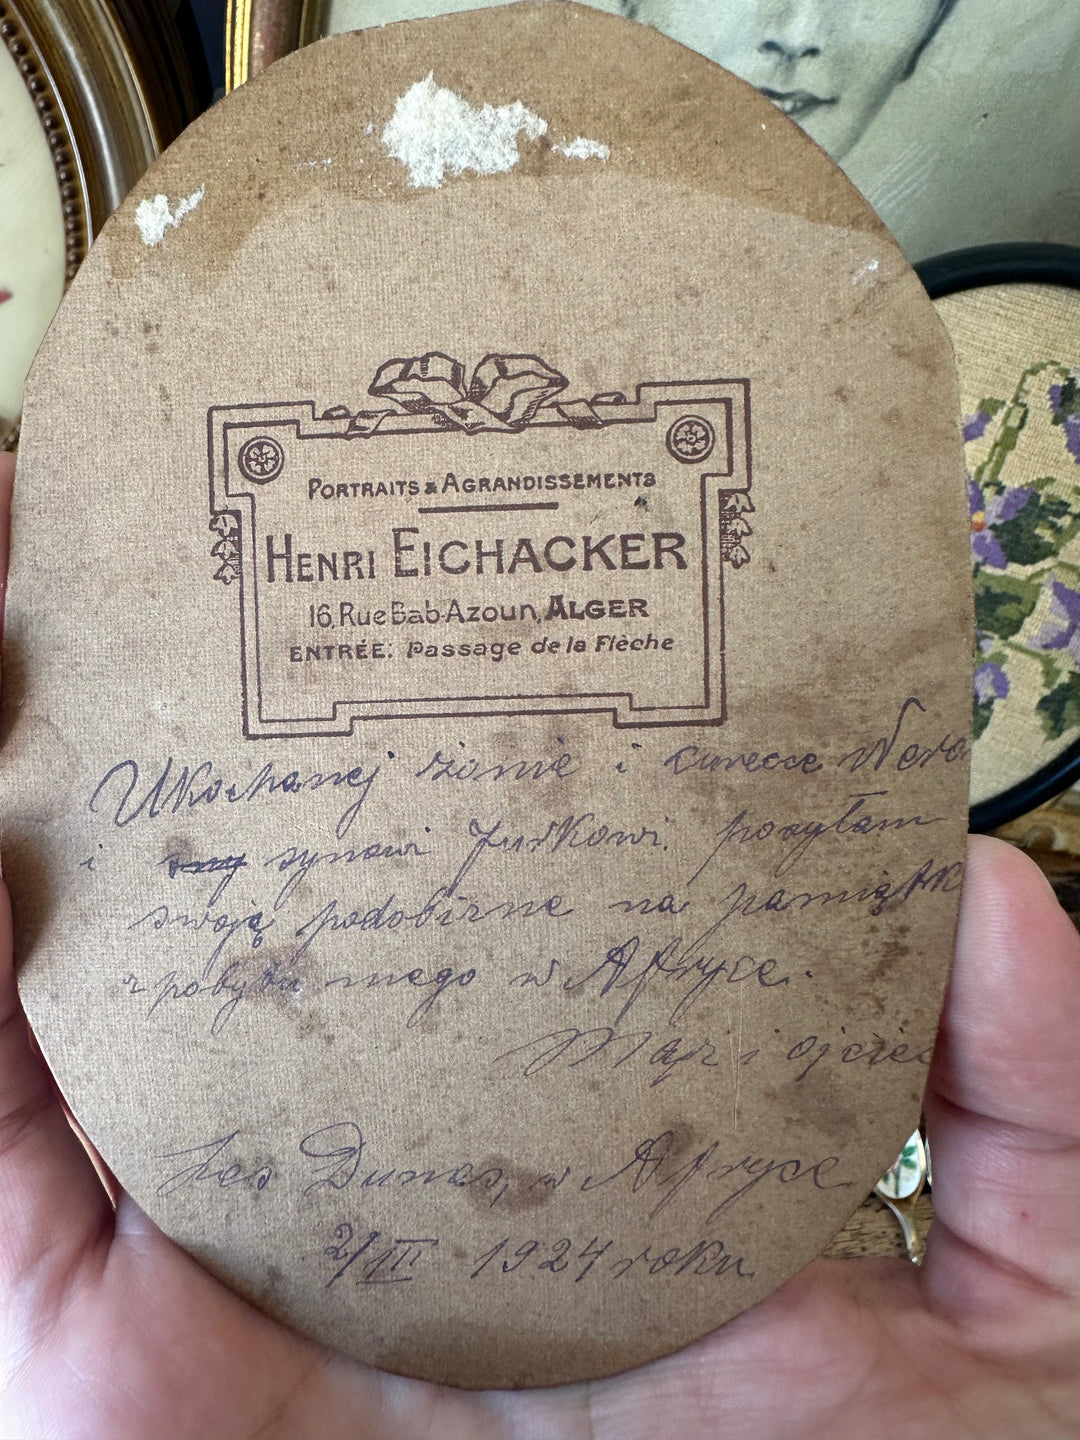 PORTRAITS & AGRANDISSEMENTS
HENRI EICHACKER
16, Rue Bab-Azoun, ALGER
ENTRÉE: Passage de la Flèche
Ukochanej żonie i curecce Wero
i synowi Jurkowi. posyłam
swoją podobizne na pamiątk
z pobytu mego w Afryce.
Mąż i ojciec
Les Dunes, w Afryce
2/III 1924 roku